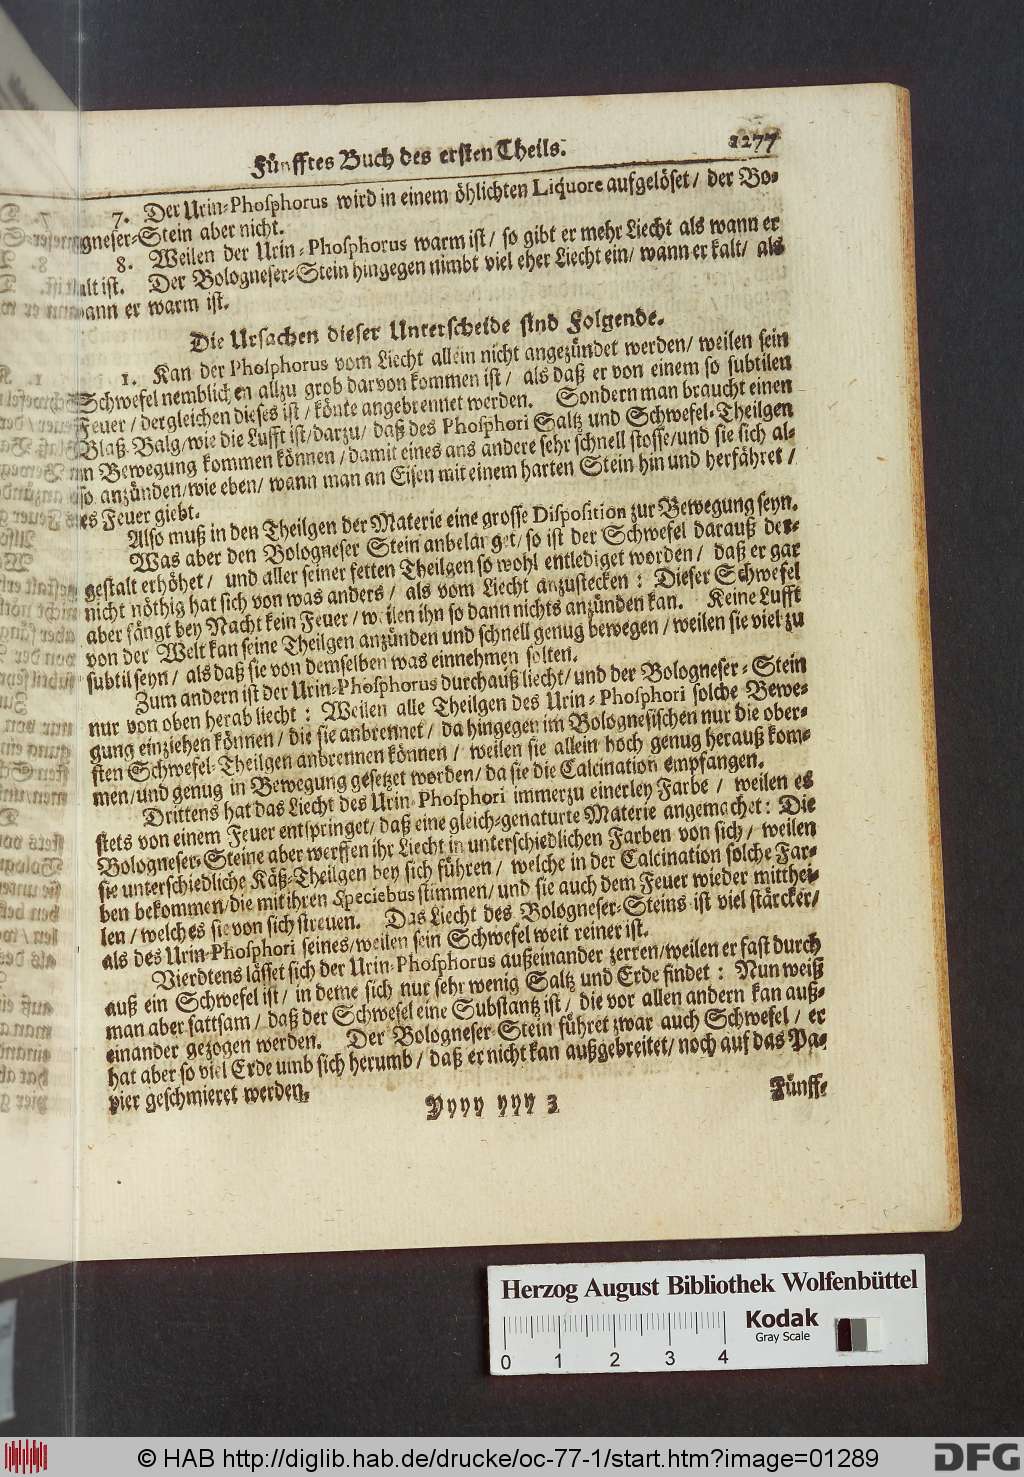 Fünfftes Buch des ersten Theils. 1277
7. Der Urin-Phosphorus wird in einem öhlichten Liquore aufgelöset / der Bo-
gneser-Stein aber nicht.
8. Weilen der Urin-Phosphorus warm ist / so gibt er mehr Liecht als wann er
alt ist. Der Bologneser-Stein hingegen nimbt viel eher Liecht ein / wann er kalt / als
ann er warm ist.
Die Ursachen dieser Unterscheide sind Folgende.
1. Kan der Phosphorus vom Liecht allein nicht angezündet werden / weilen sein
Schwefel nemblichen allzu grob darvon kommen ist / als daß er von einem so subtilen
Feuer / dergleichen dieses ist / könte angebrennet werden. Sondern man braucht einen
Blaß-Balg / wie die Lufft ist / darzu / daß des Phosphori Saltz und Schwefel-Theilgen
in Bewegung kommen können / damit eines ans andere sehr schnell stosse / und sie sich al-
so anzünden / wie eben / wann man an Eisen mit einem harten Stein hin und herfähret /
es Feuer giebt.
Also muß in den Theilgen der Materie eine grosse Disposition zur Bewegung seyn.
Was aber den Bologneser Stein anbelanget / so ist der Schwefel darauß der-
gestalt erhöhet / und aller seiner fetten Theilgen so wohl entlediget worden / daß er gar
nicht nöthig hat sich von was anders / als vom Liecht anzustecken : Dieser Schwefel
aber fängt bey Nacht kein Feuer / weilen ihn so dann nichts anzünden kan. Keine Lufft
von der Welt kan seine Theilgen anzünden und schnell genug bewegen / weilen sie viel zu
subtil seyn / als daß sie von demselben was einnehmen solten.
Zum andern ist der Urin-Phosphorus durchauß liecht / und der Bologneser-Stein
nur von oben herab liecht : Weilen alle Theilgen des Urin-Phosphori solche Bewe-
gung einziehen können / die sie anbrennet / da hingegen im Bolognesischen nur die ober-
sten Schwefel-Theilgen anbrennen können / weilen sie allein hoch genug herauß kom-
men / und genug in Bewegung gesetzet worden / da sie die Calcination empfangen.
Drittens hat das Liecht des Urin-Phosphori immerzu einerley Farbe / weilen es
stets von einem Feuer entspringet / daß eine gleich-genaturte Materie angemachet : Die
Bologneser-Steine aber werffen ihr Liecht in unterschiedlichen Farben von sich / weilen
sie unterschiedliche Käß-Theilgen bey sich führen / welche in der Calcination solche Far-
ben bekommen / die mit ihren Speciebus stimmen / und sie auch dem Feuer wieder mitthei-
len / welches sie von sich streuen. Das Liecht des Bologneser-Steins ist viel stärcker /
als des Urin-Phosphori seines / weilen sein Schwefel weit reiner ist.
Vierdtens lässet sich der Urin-Phosphorus außeinander zerren / weilen er fast durch
auß ein Schwefel ist / in deme sich nur sehr wenig Saltz und Erde findet : Nun weiß
man aber sattsam / daß der Schwefel eine Substantz ist / die vor allen andern kan auß-
einander gezogen werden. Der Bologneser-Stein führet zwar auch Schwefel / er
hat aber so viel Erde umb sich herumb / daß er nicht kan außgebreitet / noch auf das Pa-
pier geschmieret werden.
Yyyy yyy 3 Fünff-
Herzog August Bibliothek Wolfenbüttel
Kodak
Gray Scale
0 1 2 3 4
© HAB http://diglib.hab.de/drucke/oc-77-1/start.htm?image=01289
DFG